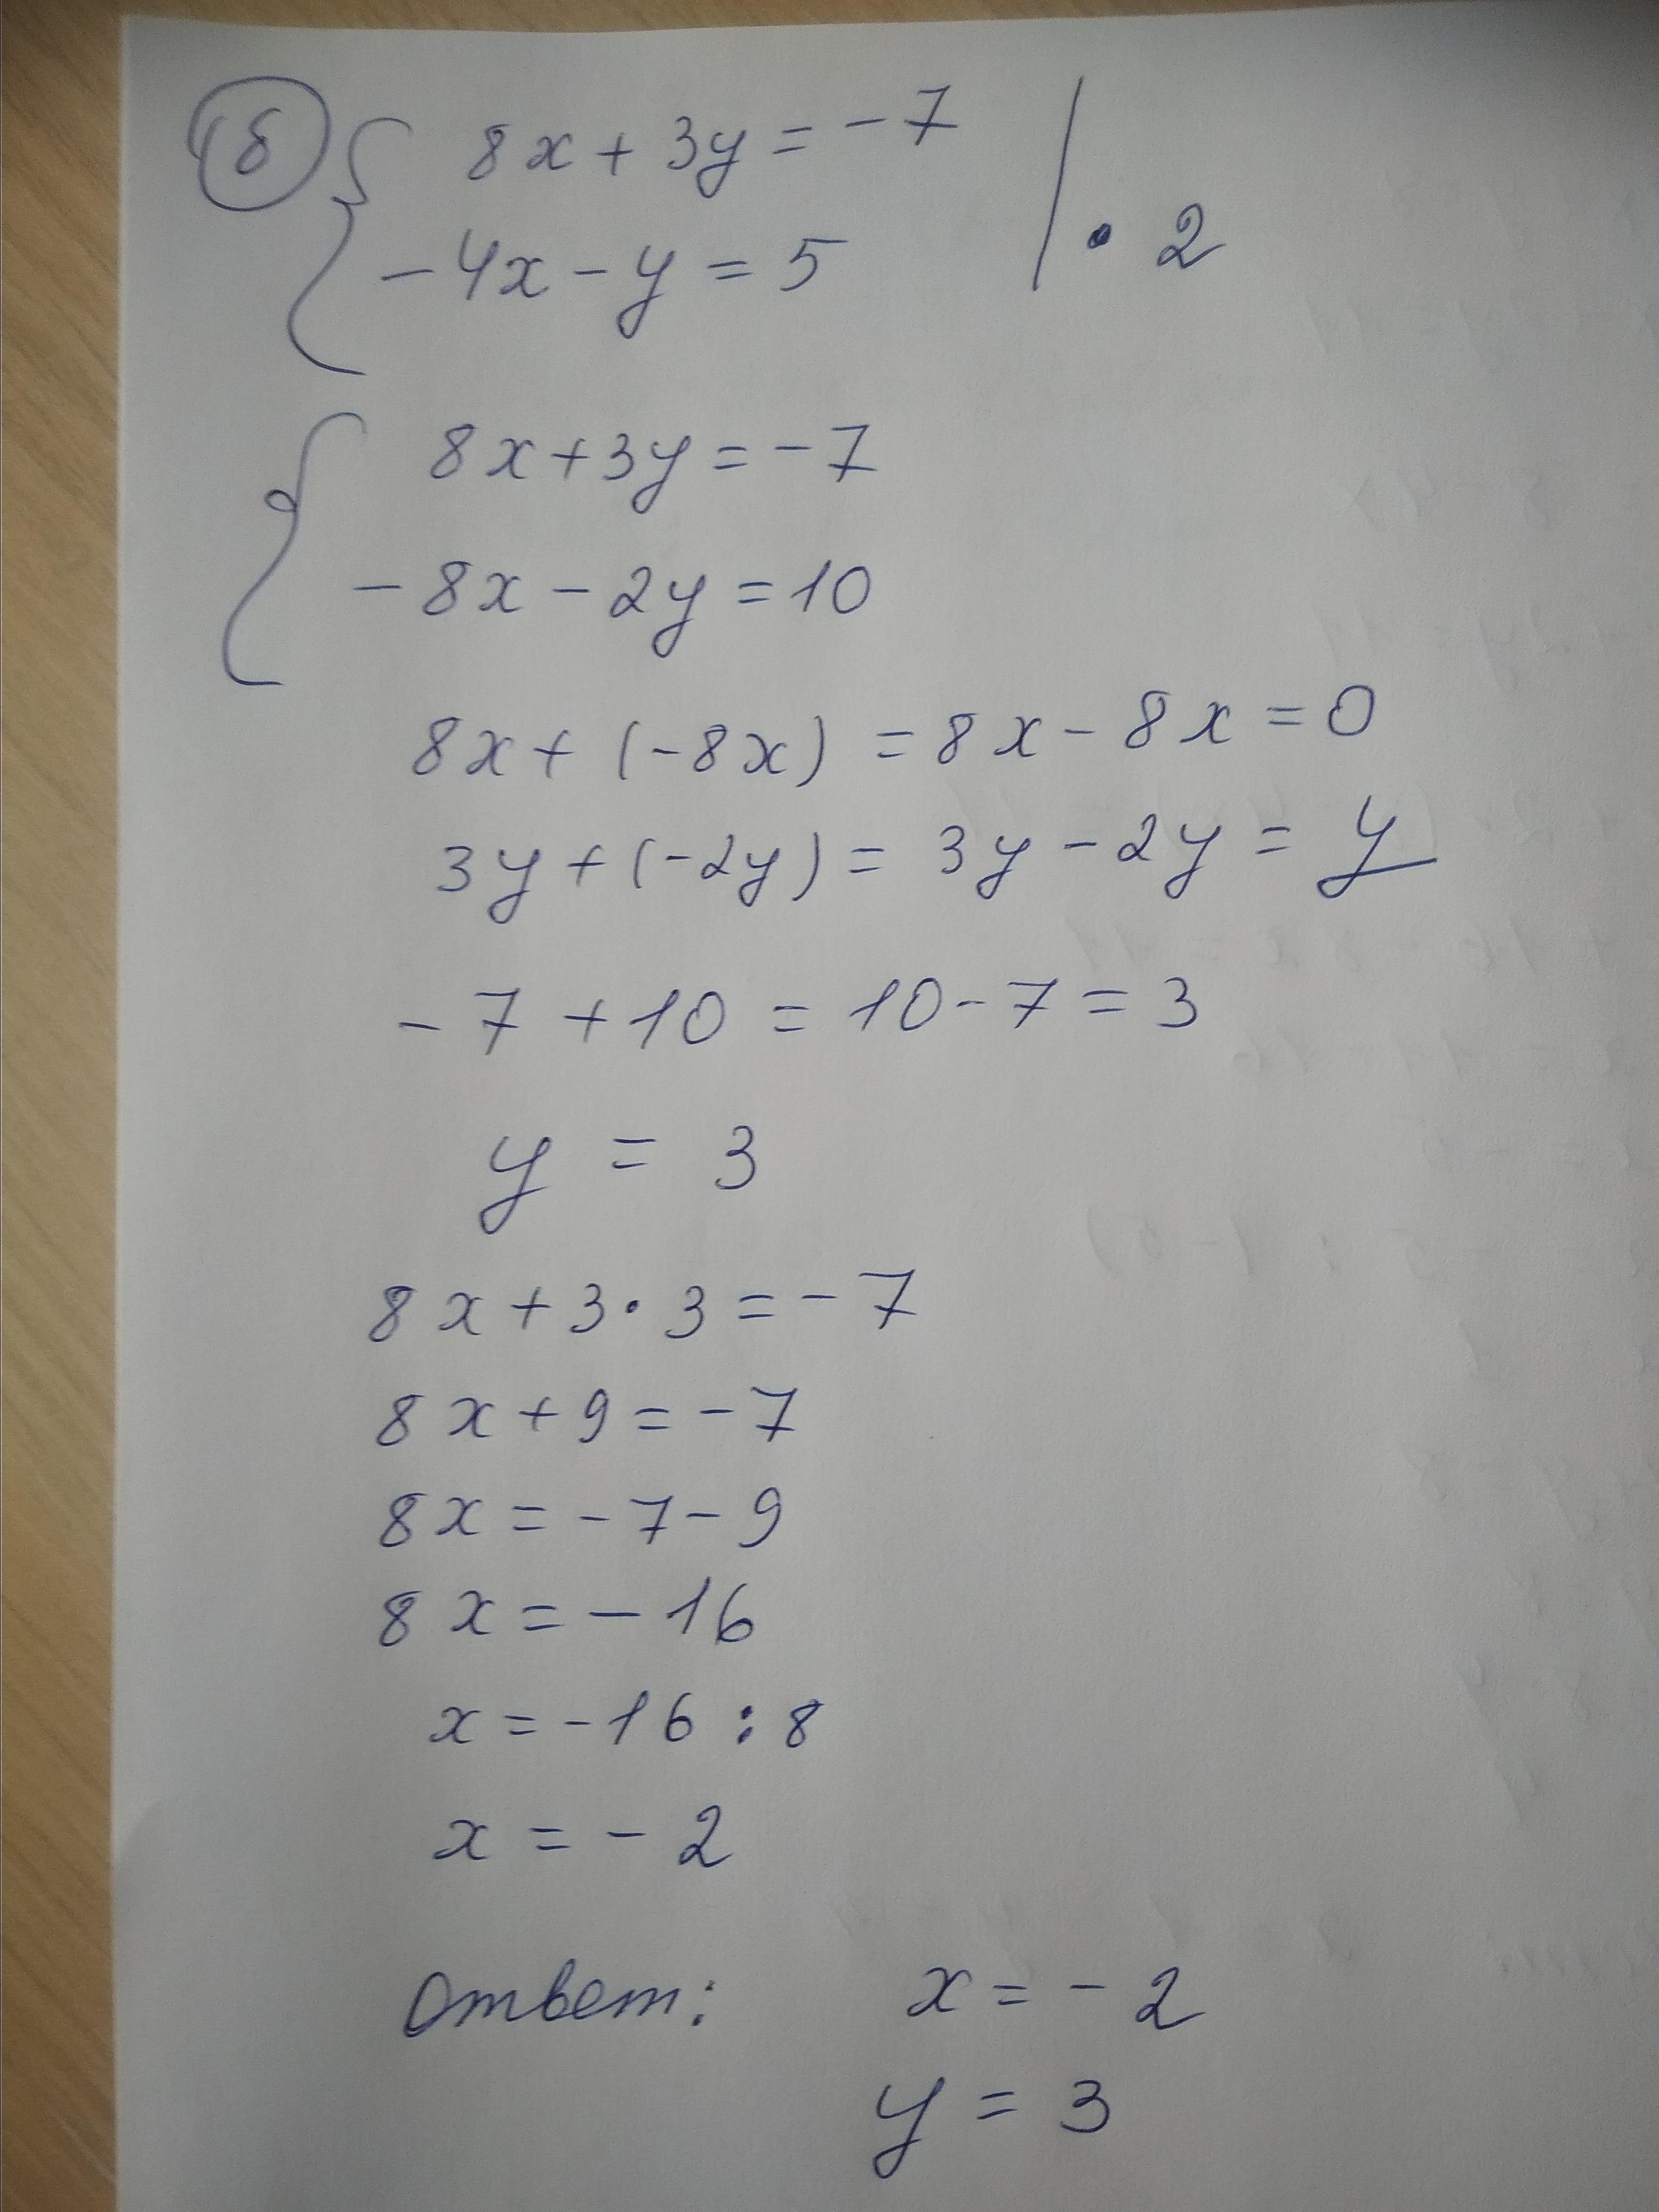 б) 8x + 3y = -7
-4x - y = 5 | · 2
8x + 3y = -7
-8x - 2y = 10
8x + (-8x) = 8x - 8x = 0
3y + (-2y) = 3y - 2y = y
-7 + 10 = 10 - 7 = 3
y = 3
8x + 3 · 3 = -7
8x + 9 = -7
8x = -7 - 9
8x = -16
x = -16 : 8
x = -2
Ответ: x = -2
y = 3